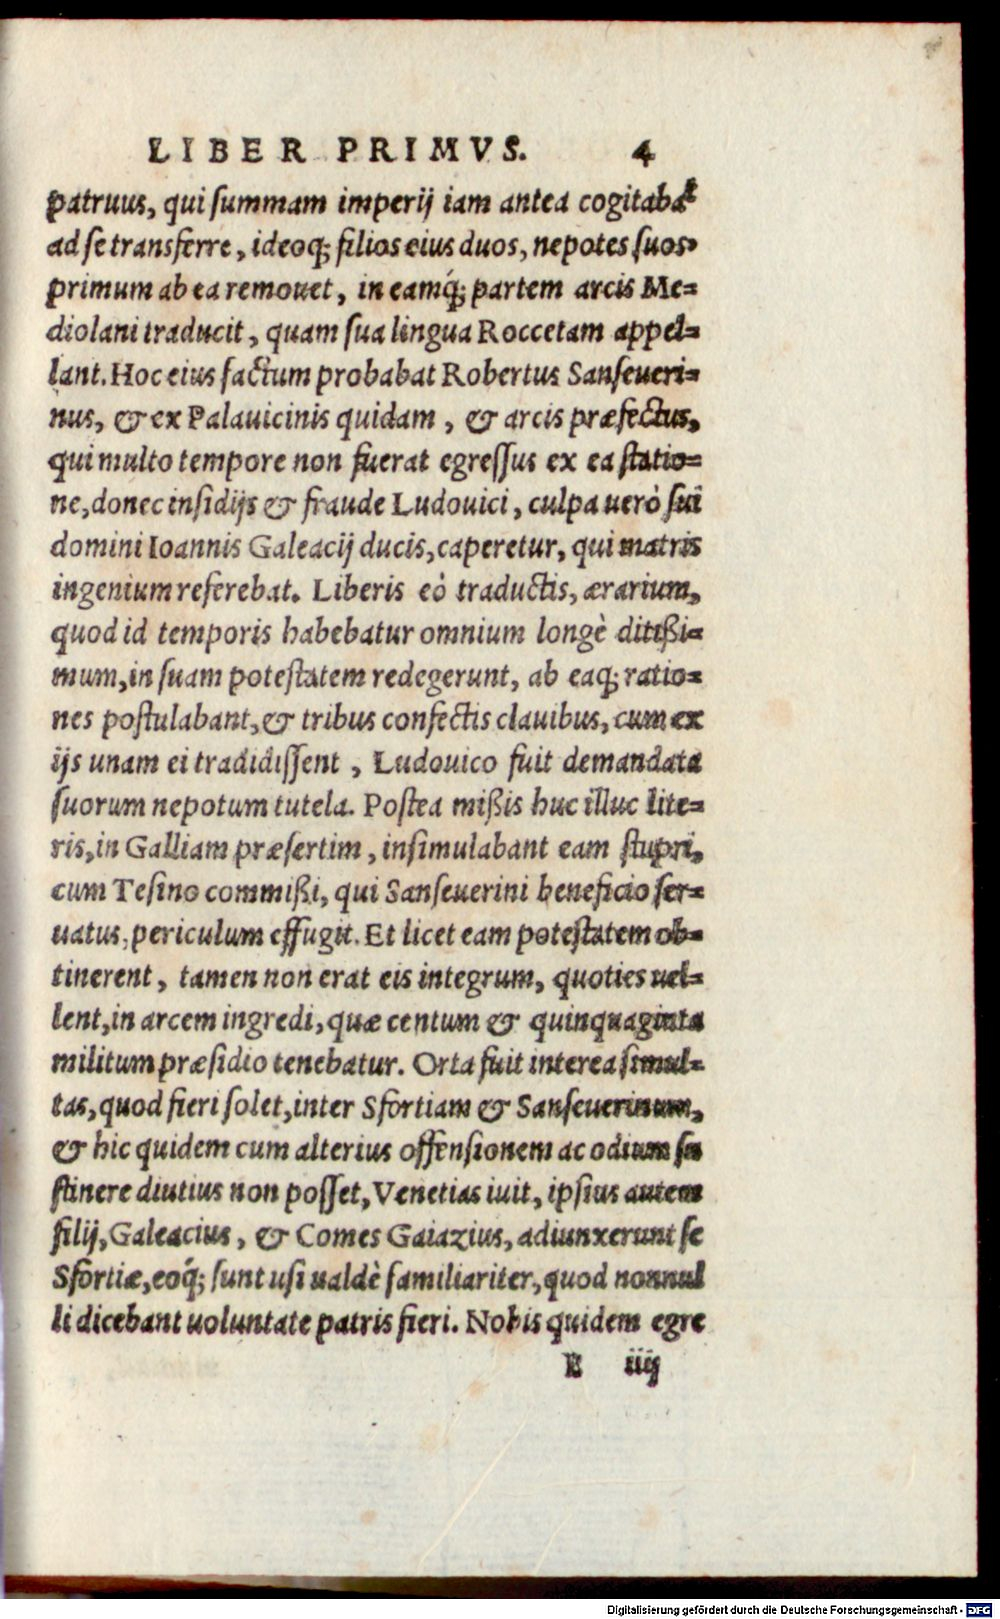 LIBER PRIMVS. 4
patruus, qui summam imperij iam antea cogitabat
ad se transferre, ideoq; filios eius duos, nepotes suos,
primum ab ea remouet, in eamq́; partem arcis Me=
diolani traducit, quam sua lingua Roccetam appel=
lant. Hoc eius factum probabat Robertus Sanseueri=
nus, & ex Palauicinis quidam, & arcis præfectus,
qui multo tempore non fuerat egressus ex ea statio=
ne, donec insidijs & fraude Ludouici, culpa uerò sui
domini Ioannis Galeacij ducis, caperetur, qui matris
ingenium referebat. Liberis eò traductis, ærarium,
quod id temporis habebatur omnium longè dittßi=
mum, in suam potestatem redegerunt, ab eaq; ratio=
nes postulabant, & tribus confectis clauibus, cum ex
ijs unam ei tradidissent, Ludouico fuit demandata
suorum nepotum tutela. Postea mißis huc illuc lite=
ris, in Galliam præsertim, insimulabant eam stupri,
cum Tesino commißi, qui Sanseuerini beneficio ser=
uatus, periculum effugit. Et licet eam potestatem ob=
tinerent, tamen non erat eis integrum, quoties uel=
lent, in arcem ingredi, quæ centum & quinquaginta
militum præsidio tenebatur. Orta fuit interea simul=
tas, quod fieri solet, inter Sfortiam & Sanseuerinum,
& hic quidem cum alterius offensionem ac odium su
stinere diutius non posset, Venetias iuit, ipsius autem
filij, Galeacius, & Comes Gaiazius, adiunxerunt se
Sfortiæ, eoq́; sunt usi ualdè familiariter, quod nonnul
li dicebant uoluntate patris fieri. Nobis quidem egre
E iiij
Digitalisierung gefördert durch die Deutsche Forschungsgemeinschaft - DFG